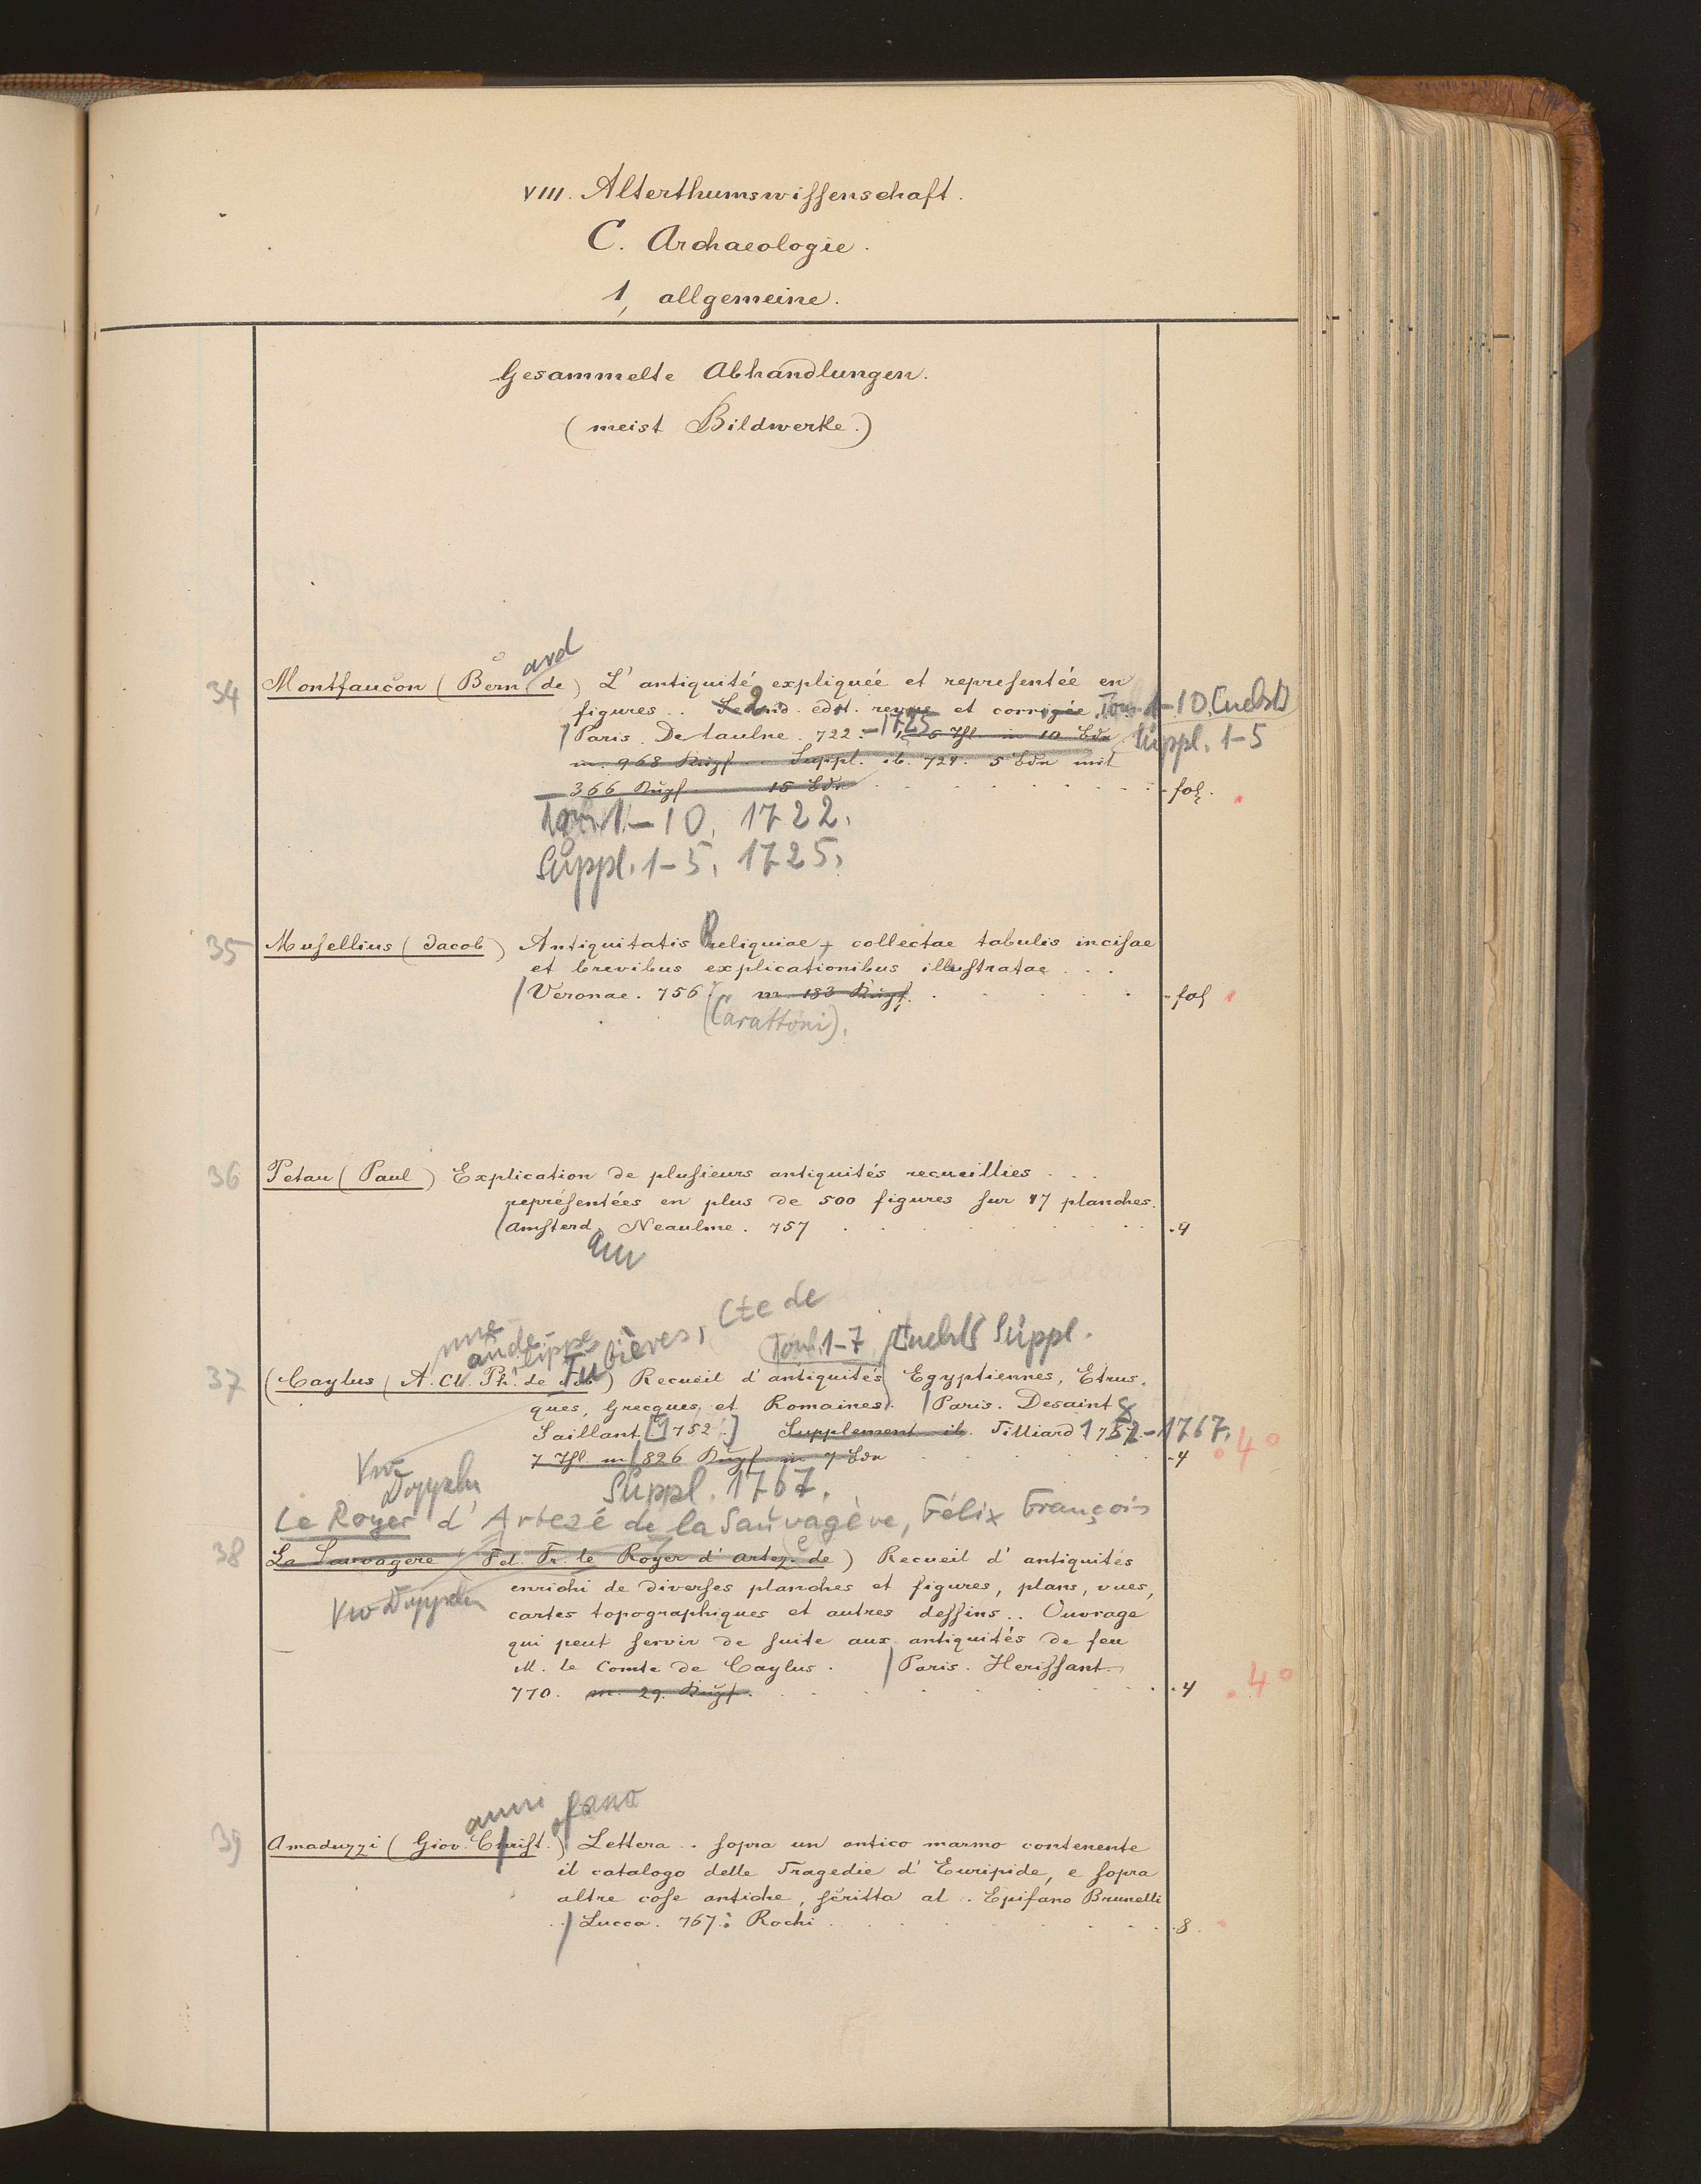 VIII. Alterthumswissenschaft.
C. Archaeologie.
1, allgemeine.
Gesammelte Abhandlungen.
(meist Bildwerke.)
ard
34 Montfaucon (Bern de) L'antiquité expliquée et representée en
figures .. 2 edit. revue et corrigée. Tom. 1-10. (nebst)
Paris. Delaulne. 722.-1725 5 Thl. in 10 Bdn Suppl. 1-5
m. 968 Kupf. Suppl. ib. 724. 5 Bdn mit
366 Kupf. 15 Bdn fol.
Tom. 1-10. 1722.
Suppl. 1-5. 1725.
35 Musellius (Jacob) Antiquitatis Reliquiae, collectae tabulis incisae
et brevibus explicationibus illustratae ...
Veronae. 756. m. 183 Kupf. fol
(Carattoni).
36 Petau (Paul) Explication de plusieurs antiquités recueillies ...
représentées en plus de 500 figures sur 47 planches.
Amsterd. Neaulme. 757 4
am
Tubières, Cte de
Tom. 1-7 nebst Suppl.
37 (Caylus (A. Cl. Ph. de) Recueil d'antiquités Egyptiennes, Etrus-
ques, Grecques et Romaines. Paris. Desaint &
Saillant [1752.] Supplement ib. Tilliard 1752-1767.
7 Thl. m. 826 Kupf. in 7 Bdn 4 4°
Vw Doppeln
Suppl. 1767.
Le Royer d'Artezé de la Sauvagère, Félix François
38 La Sauvagere (Fel. Fr. le Royer d'Artez. de) Recueil d'antiquités
enrichi de diverses planches et figures, plans, vues,
Vw Doppeln
cartes topographiques et autres dessins .. Ouvrage
qui peut servir de suite aux antiquités de feu
M. le Comte de Caylus. Paris. Herissant
770. m. 29. Kupf. 4 4°
anni ofano
39 Amaduzzi (Giov. Christ.) Lettera .. sopra un antico marmo contenente
il catalogo delle Tragedie d'Euripide, e sopra
altre cose antiche, scritta al .. Epifano Brunelli
Lucca. 767: Rochi 8